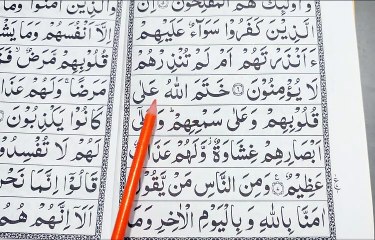 وَاُولٰٓئِكَ هُمُ الْمُفْلِحُوْنَ ۝ اِنَّ
الَّذِيْنَ كَفَرُوْا سَوَآءٌ عَلَيْهِمْ
ءَاَنْذَرْتَهُمْ اَمْ لَمْ تُنْذِرْهُمْ
لَا يُؤْمِنُوْنَ ۝ خَتَمَ اللّٰهُ عَلٰى
قُلُوْبِهِمْ وَعَلٰى سَمْعِهِمْ ؕ وَعَلٰٓى
اَبْصَارِهِمْ غِشَاوَةٌ ؗ وَّلَهُمْ عَذَابٌ
عَظِيْمٌ ۝ وَمِنَ النَّاسِ مَنْ يَّقُوْلُ
اٰمَنَّا بِاللّٰهِ وَبِالْيَوْمِ الْاٰخِرِ وَمَا
وَالَّذِيْنَ اٰمَنُوْا ۚ وَمَا
اِلَّاۤ اَنْفُسَهُمْ وَمَا يَشْ
قُلُوْبِهِمْ مَّرَضٌ ۙ فَ
مَرَضًا ۚ وَلَهُمْ عَذَا
كَانُوْا يَكْذِبُوْنَ
لَهُمْ لَا تُفْسِدُ
قَالُوْۤا اِنَّمَا نَحْ
اَلَاۤ اِنَّهُمْ هُمُ